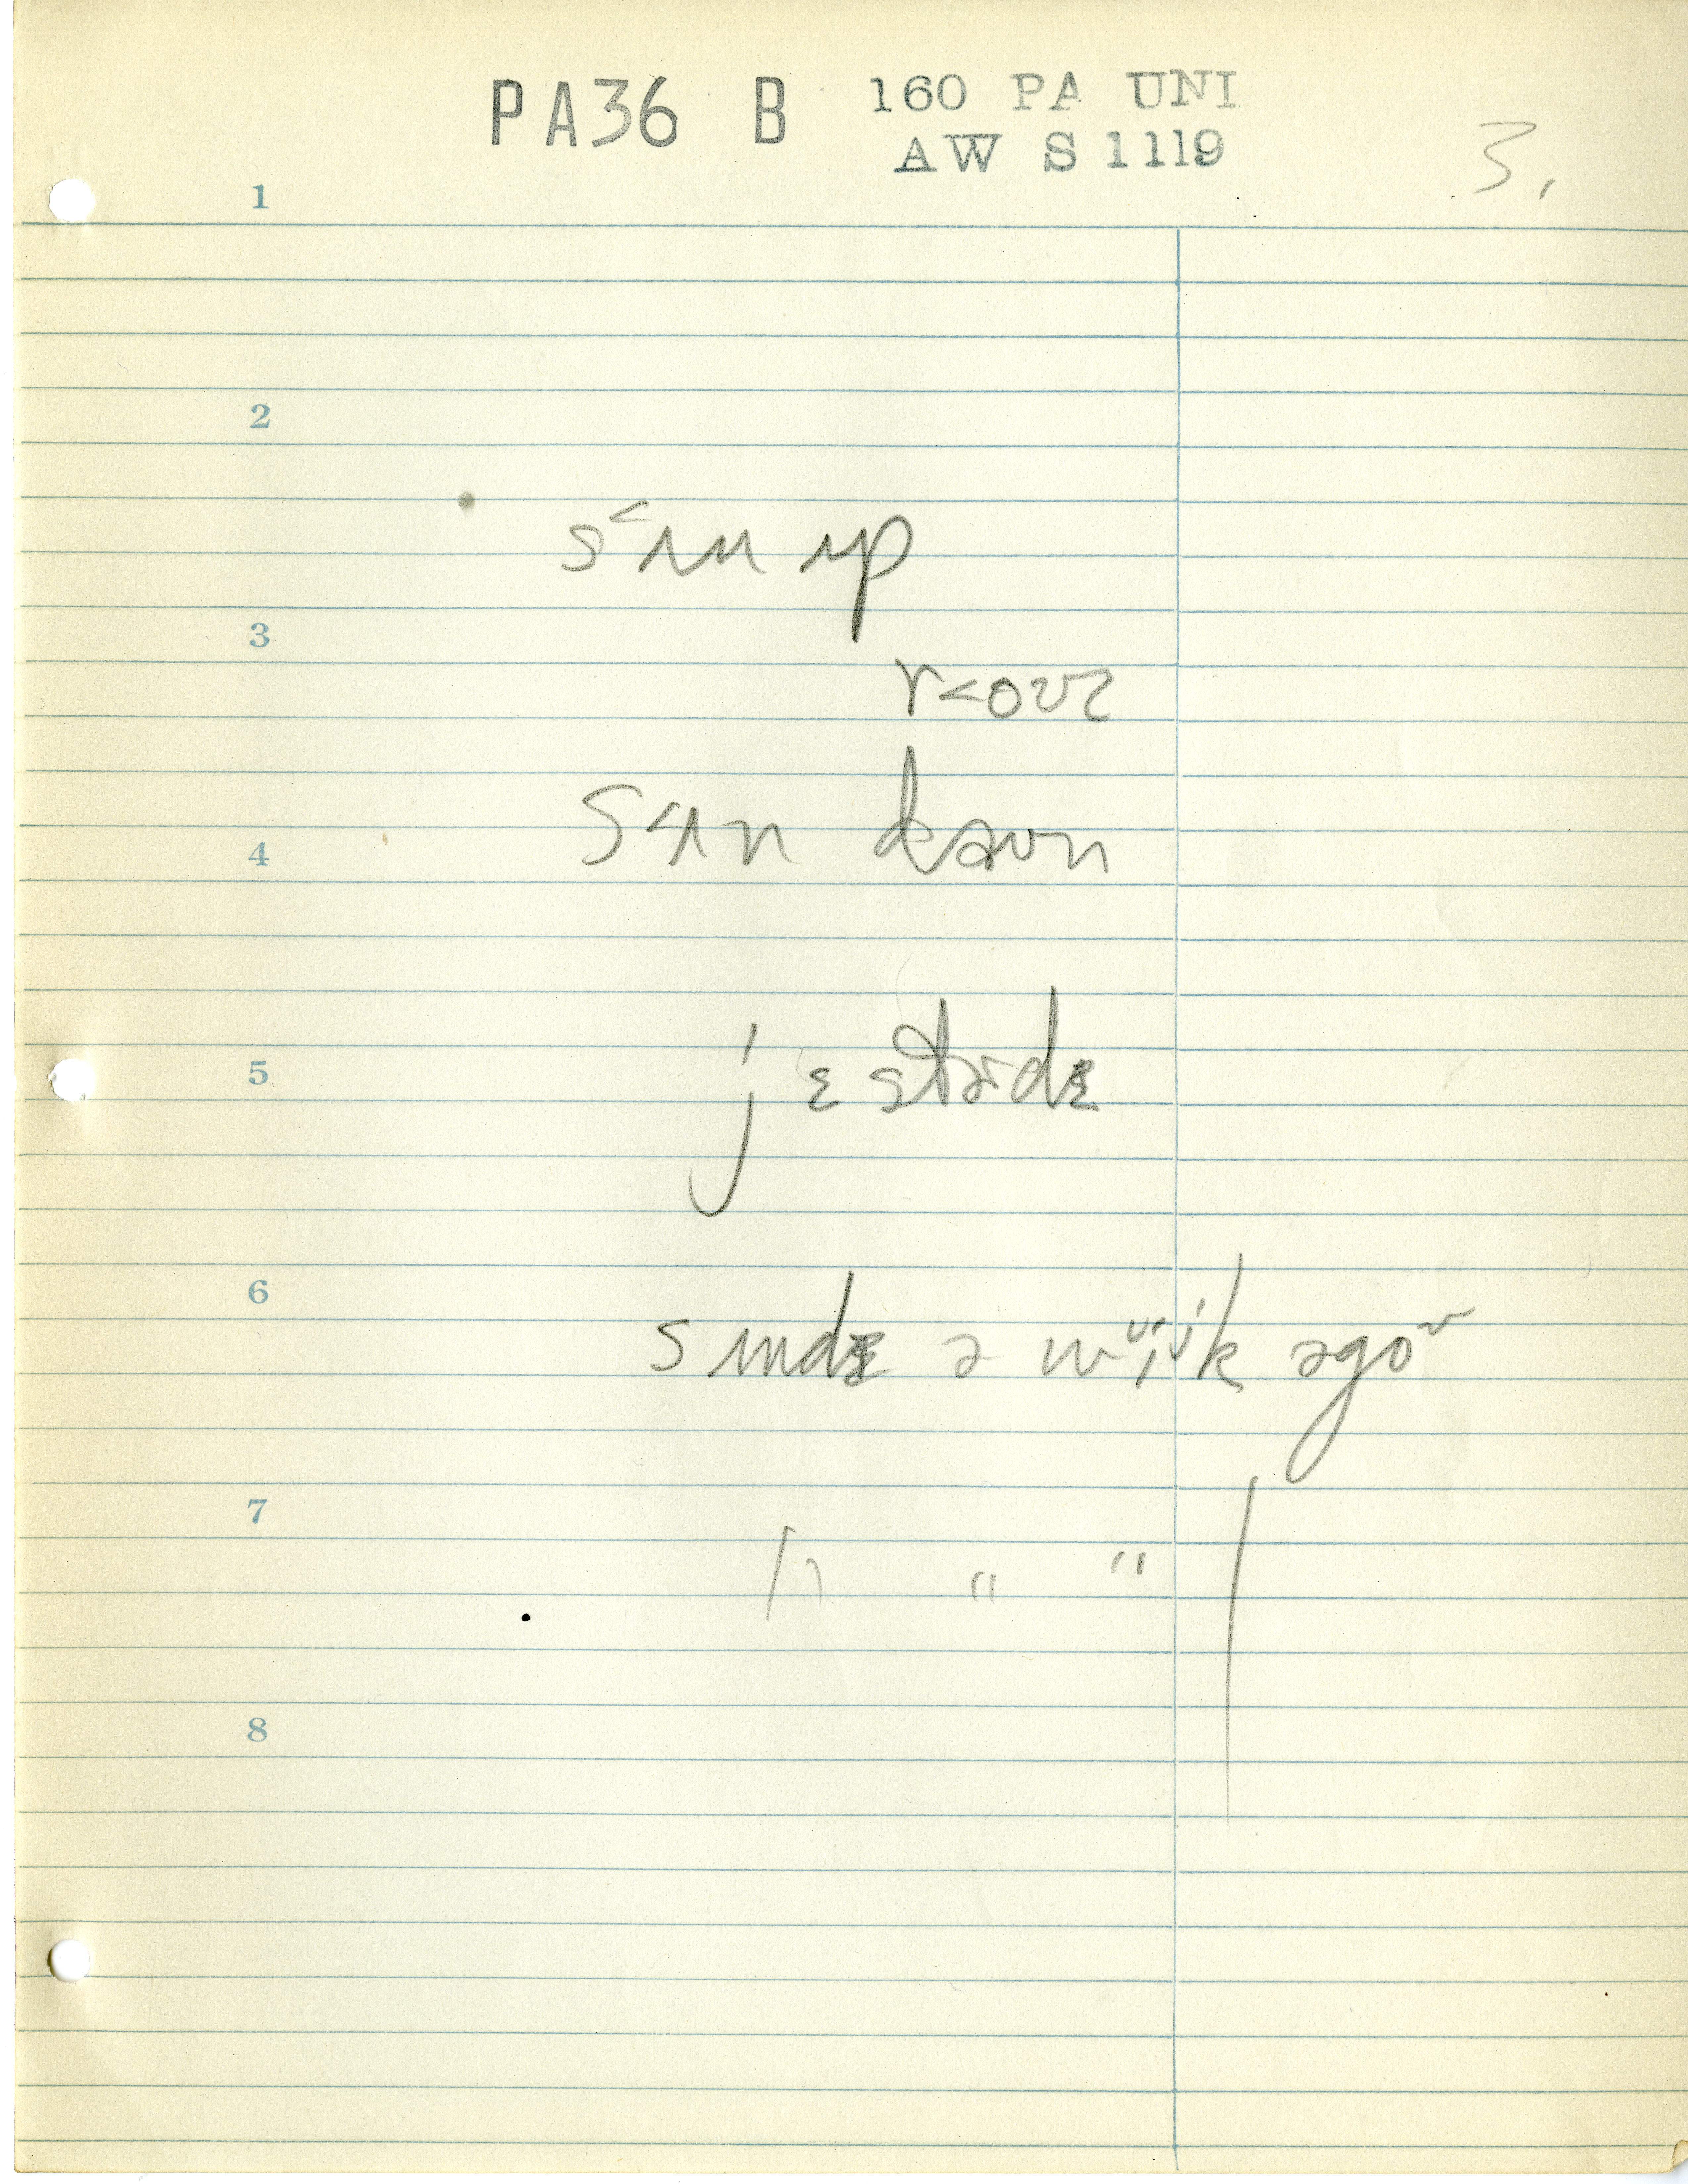 PA36 B 160 PA UNI
AW S 1119
3.
1
2
sʌ˂n ʌp
3
r˂ovɚ
s˂ʌn daʊn
4
5
jɛstɚdɛ
6
sʌndɛ ə wʊik əgoʊ
7
" " "
8